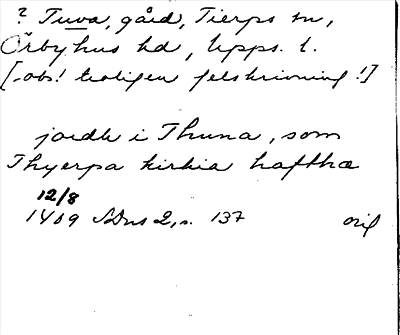 ? Tuva, gård, Tierps sn,
Örbyhus hd, Upps. l.
[obs! troligen felskrivning!]
jordh i Thuna, som
Thyerpa kirkia hafthæ
12/8
1409 SDns 2, s. 137 orig